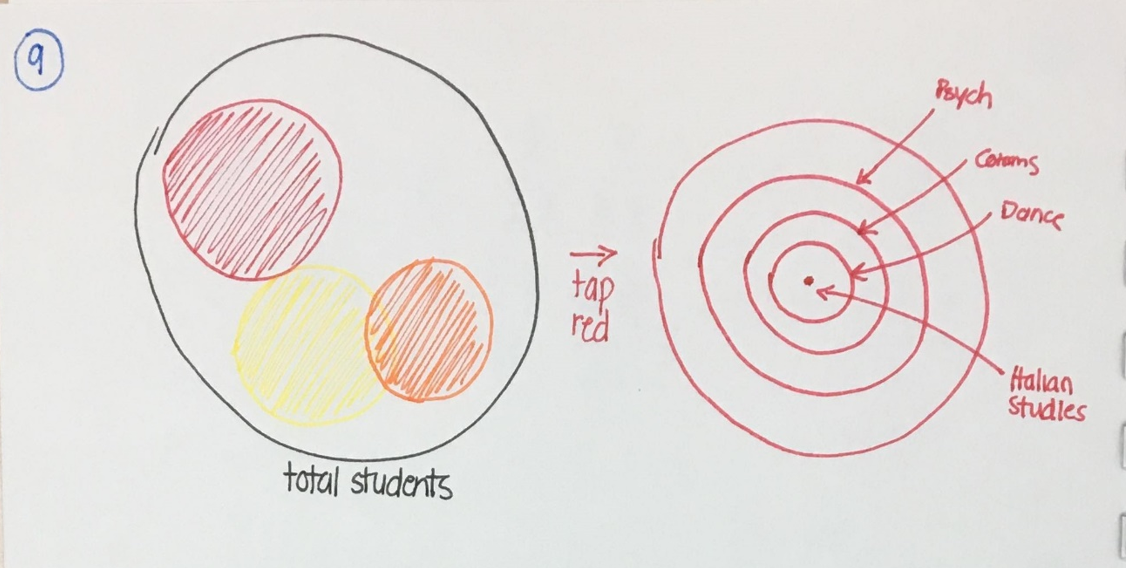 9
total students
tap
red
Psych
Comms
Dance
Italian
Studies